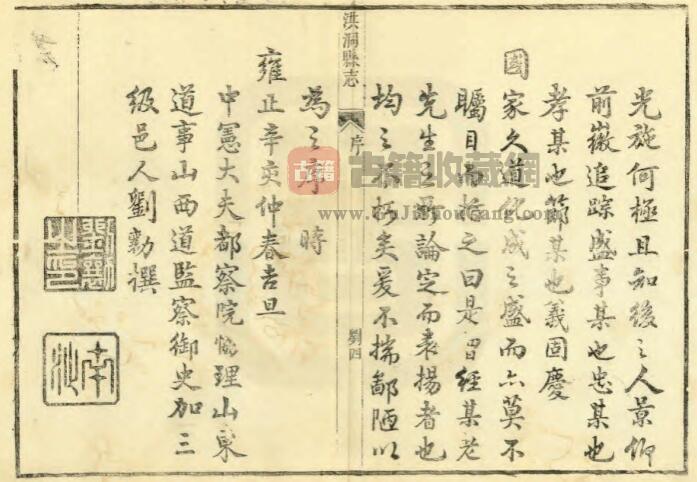 光施何極且知後之人景仰
前徽追踪盛事某也忠某也
孝某也節某也義固慶
國家久道化成之盛而亦莫不
矚目而指之曰是曾經某老
先生之所論定而表揚者也
均之不朽矣爰不揣鄙陋以
洪洞縣志
序
劉四
為之序時
雍正辛亥仲春吉旦
中憲大夫都察院協理山東
道事山西道監察御史加三
級邑人劉勷譔
劉勷之印
古籍
古籍收藏網